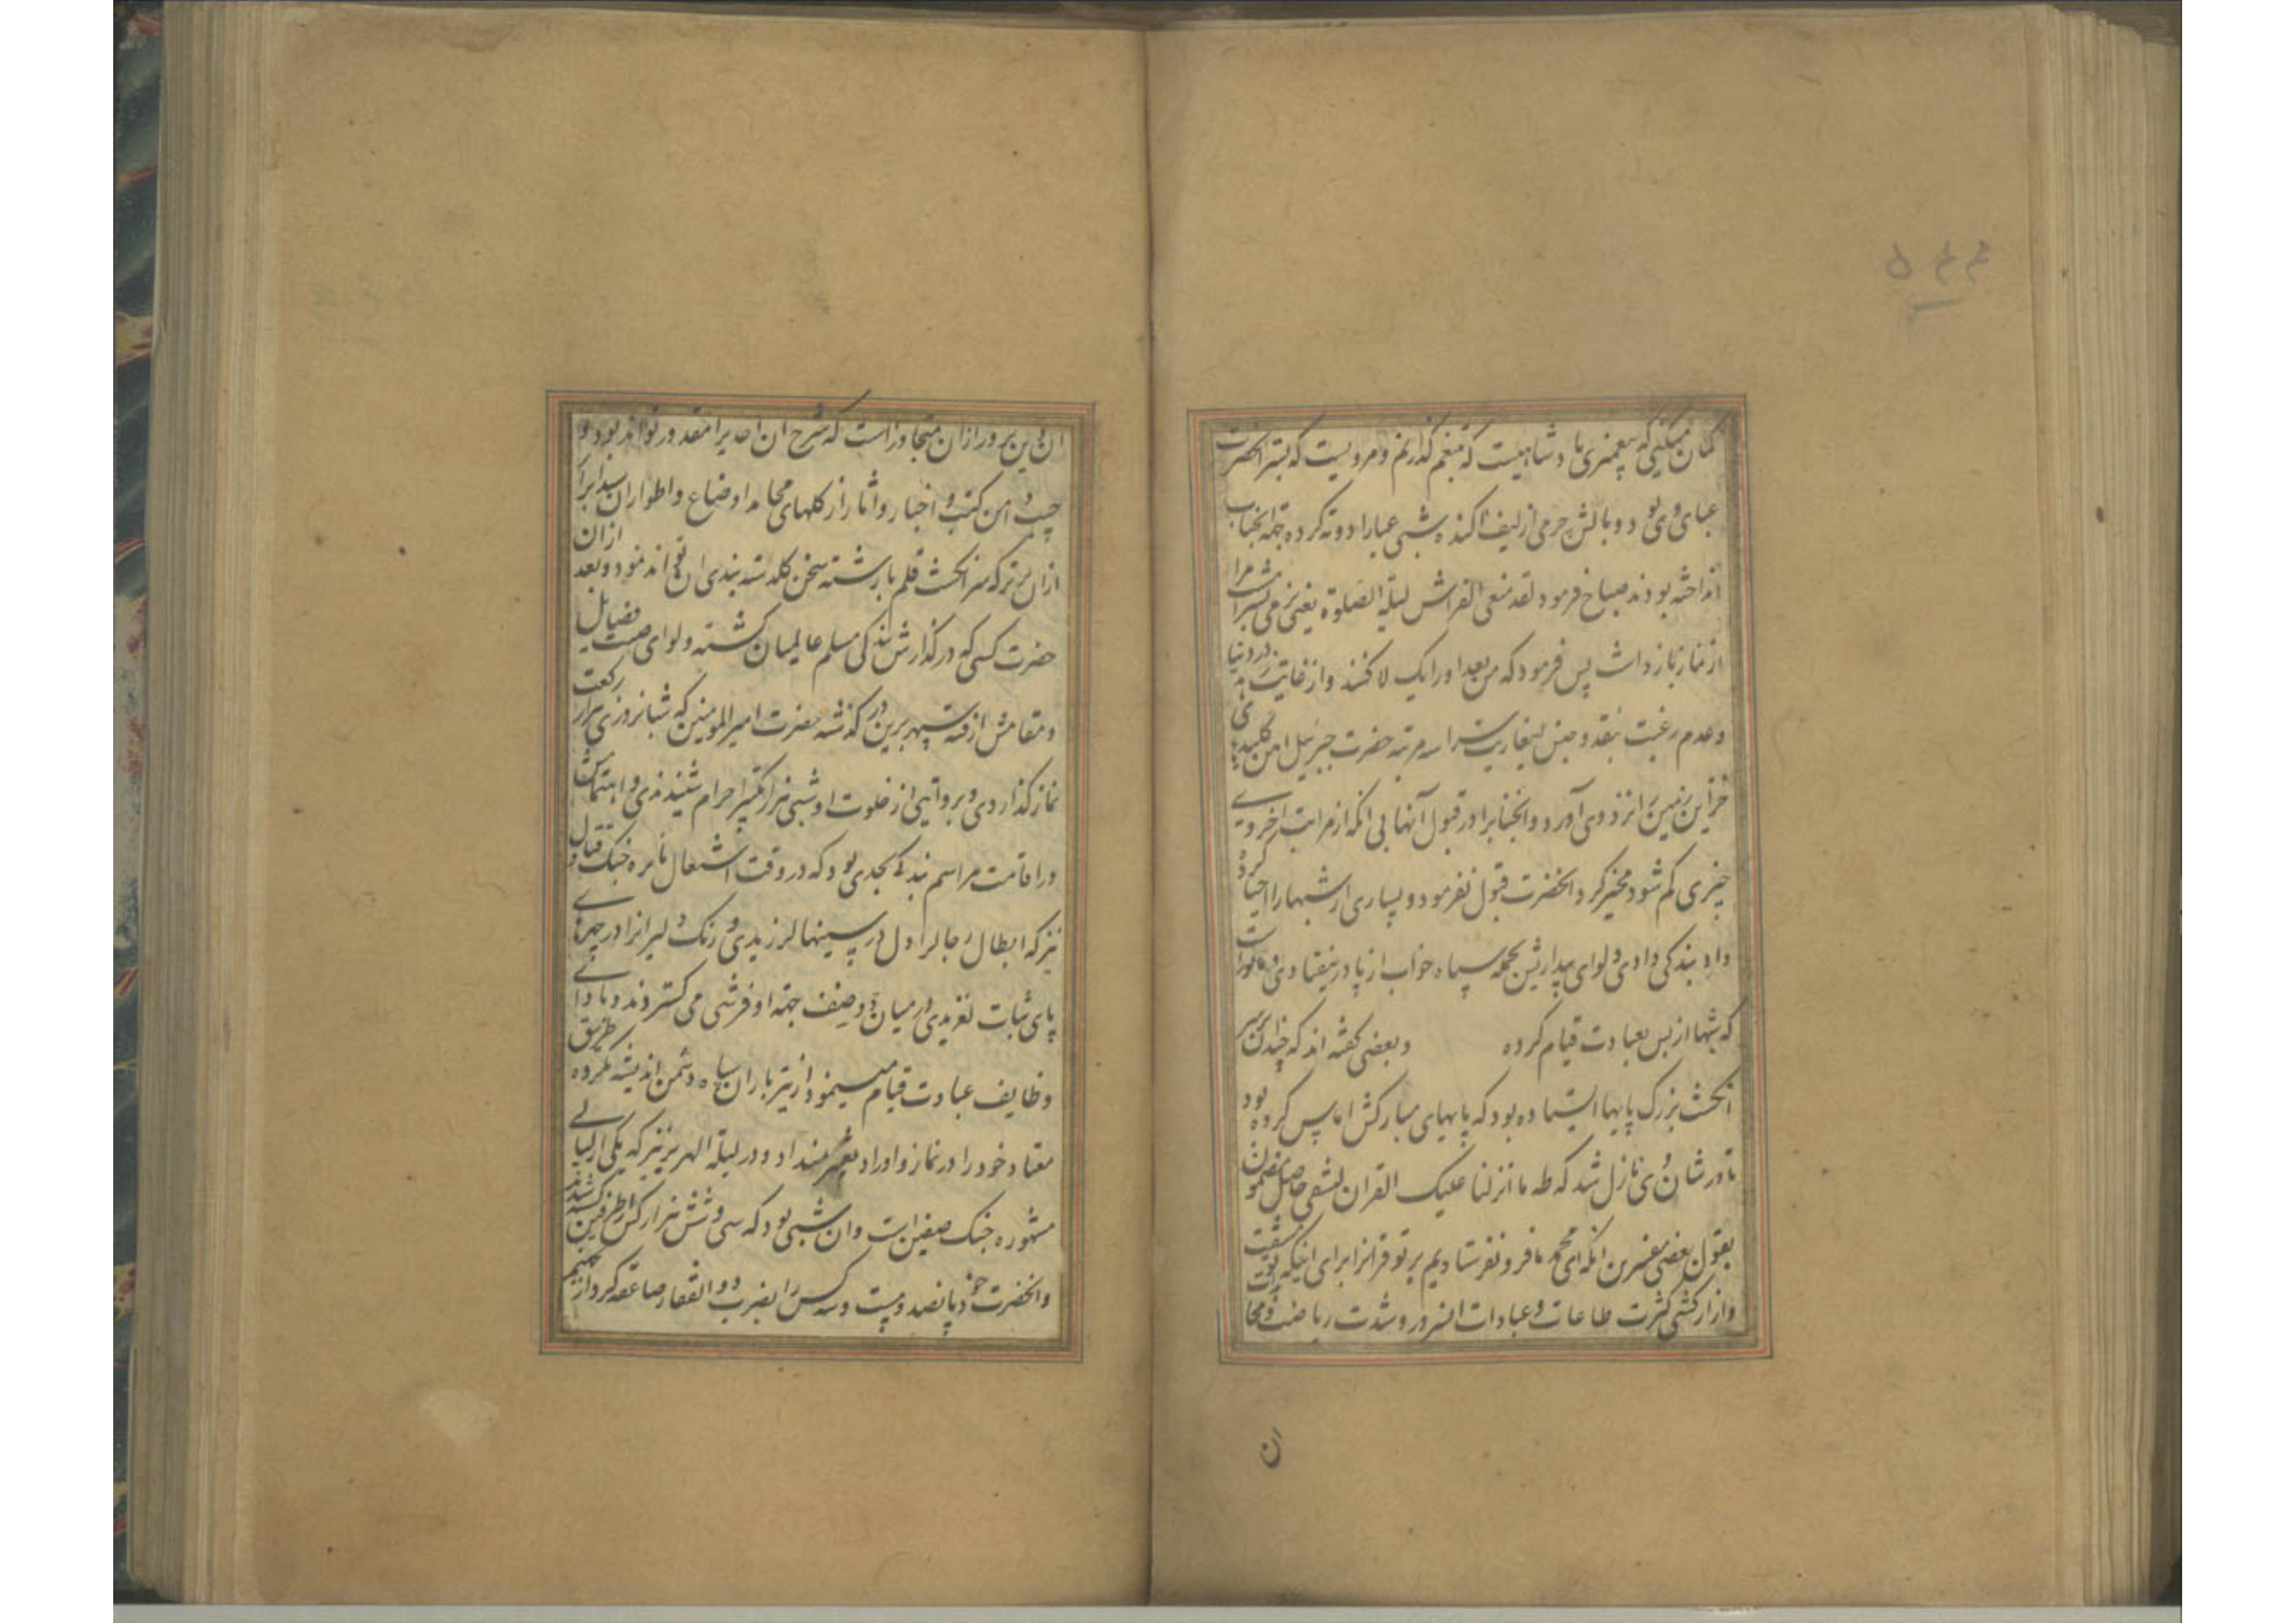 ۵۴۴
گمان میکنی که پیغمبری پادشاهیست که بتنعم گذرانم و مرویست که بستر انحضرت
عبای وی بود و بالش چرمی از لیف اکنده شبی عبا را دوته کرده جهة انجناب
انداخته بودند صباح فرمود لقد منعی الفراش لیلة الصلوة یعنی نرمی بستر مرا
از نماز باز داشت پس فرمود که من بعد او را یک لا کنند و از غایت زهد در دنیا
و عدم رغبت بنقد و جنس این سرا سه مرتبه حضرت جبرئیل امین کلیدهای
خزاین زمین را نزد وی آورد و انجناب را در قبول آنها بی انکه از مراتب اخروی
چیزی کم شود مخیر کرد انحضرت قبول نفرمود و بسیاری از شبها را احیا کرده
داد بندگی دادی و لوای بیداریش بحمله سپاه خواب از پا در نیفتادی و ماثورات
که شبها از بس بعبادت قیام کرده و بعضی گفته اند که چندان بر سر
انگشت بزرگ پایها ایستاده بود که پایهای مبارکش اماس کرده بود
تا در شان وی نازل شد که طه ما انزلنا علیک القران لتشقی حاصل مضمون
بقول بعضی مفسرین انکه ای محمد ما فرو نفرستادیم بر تو قرانرا برای اینکه بمشقت
و ازار کشی کثرت طاعات و عبادات انسرور و شدت ریاضت و مجا
ان
ان دین پرور ازان متجاوز است که شرح ان احدیرا مقدور تواند بود و
جیب و دامن کتب و اخبار و اثار از گلهای محامد اوضاع و اطوار ان سید ابرار
ازان پرتر که سر انگشت قلم با رشته سخن گلدسته بندی ان تواند نمود و بعد ازان
حضرت کسی که در گذارش بندگی مسلم عالمیان گشته و لوای صیت فضایل
و مقامش از قبه سپهر برین در گذشته حضرت امیر المومنین که شبانروزی هزار رکعت
نماز گذاردی و بروایتی از خلوت او شبی هزار تکبیر احرام شنیدندی و اهتمامش
در اقامت مراسم بندگی بحدی بود که در وقت اشتعال نایره جنک و قتال
نیز که ابطال رجال را دل در سینها لرزیدی و رنک دلیرانرا در چهره
پای ثبات لغزیدی در میان دو صف جهة او فرشی می گستردند و بادای
وظایف عبادت قیام مینمود از تیر باران سپاه دشمن اندیشه نکرده طریق
معتاد خود را در نماز و اوراد تغییر نمیداد و در لیلة الهریر نیز که یکی از لیالی
مشهوره جنک صفین است وان شبی بود که سی و شش هزار کس از طرفین کشته شدند
وانحضرت خود پانصد و بیست و سه کس را بضرب ذو الفقار صاعقه کردار